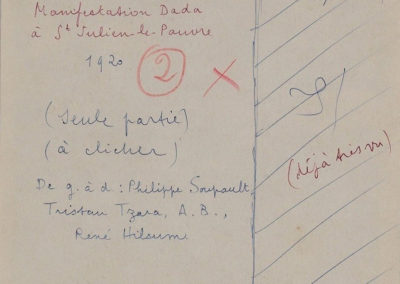 Manifestation Dada
à St Julien-le-Pauvre
1920
2
(seule partie)
(à clicher)
De g. à d : Philippe Soupault,
Tristan Tzara, A. B.,
René Hilsume
(déjà très vu)